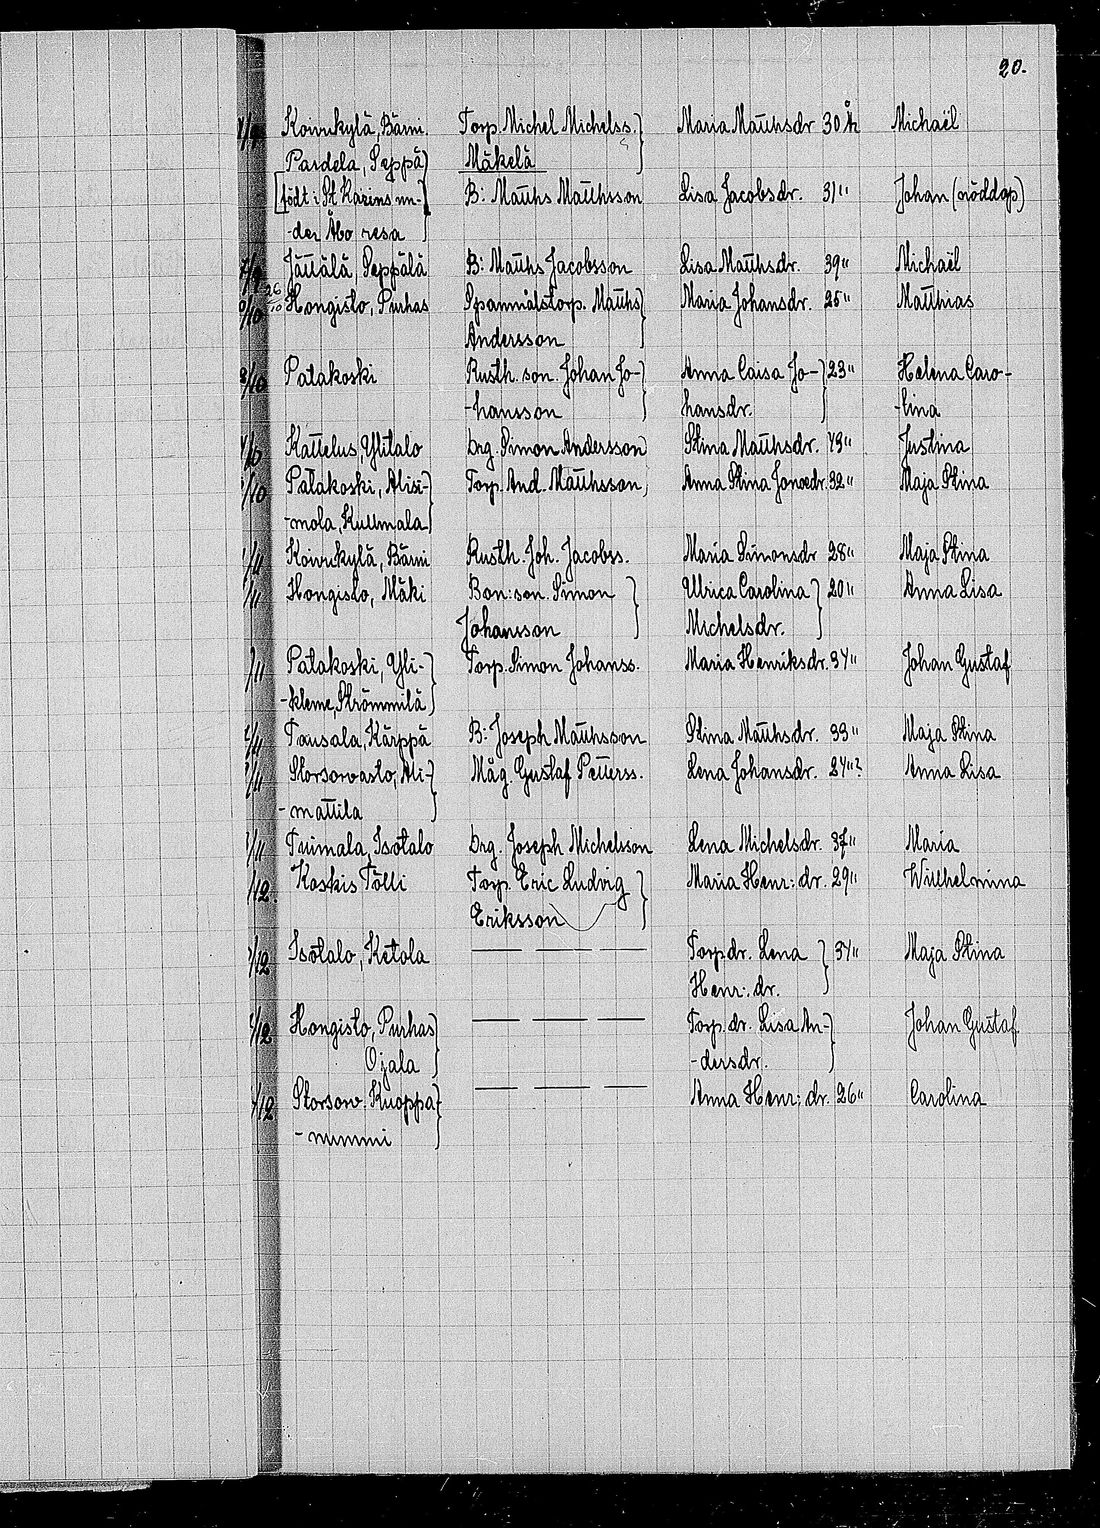 20.
Koivukylä, Bärni. Torp. Michel Michelss. Maria Matthsdr. 30 År Michaël
Pardela, Seppä Mäkelä
[född i St Karins un- B: Matths Matthsson Lisa Jacobsdr. 31" Johan (nöddop)
-der Åbo resa]
Jättälä, Seppälä B: Matths Jacobsson Lisa Matthsdr. 39" Michaël
/10 26/10 Hongisto, Purhas Spannmålstorp. Matths Maria Johansdr. 25" Matthias
Andersson
/10 Patakoski Rusth. son. Johan Jo- Anna Caisa Jo- 23" Helena Caro-
-hansson hansdr. -lina
/10 Kattelus, Ylitalo Drg. Simon Andersson Stina Matthsdr. 43" Justina
/10 Patakoski, Alisi- Torp. And. Matthsson, Anna Stina Jonaedr. 32" Maja Stina
-mola, Kullmala
/11 Koivukylä, Bärni Rusth. Joh. Jacobss. Maria Simonsdr 28" Maja Stina
/11 Hongisto, Mäki Bon: son. Simon Ulrica Carolina 20" Anna Lisa
Johansson Michelsdr.
/11 Patakoski, Yli- Torp. Simon Johanss. Maria Henriksdr. 34" Johan Gustaf
-kleme, Strömmilä
/11 Tausala, Kärppä B: Joseph Matthsson Stina Matthsdr. 33" Maja Stina
/11 Storsorvasto, Ali- Måg. Gustaf Petterss. Lena Johansdr. 24"? Anna Lisa
-mattila
/11 Tuimala, Isotalo Drg. Joseph Michelsson Lena Michelsdr. 37" Maria
/12. Koskis Tölli Torp. Eric Ludvig Maria Henr: dr. 29" Wilhelmina
Eriksson
/12 Isotalo, Ketola — — — Torp.dr. Lena 34" Maja Stina
Henr: dr.
/12 Hongisto, Purhas — — — Torp. dr. Lisa An- Johan Gustaf
Ojala -dersdr.
/12 Storsorv. Kuoppa — — — Anna Henr: dr. 26" Carolina
-nummi